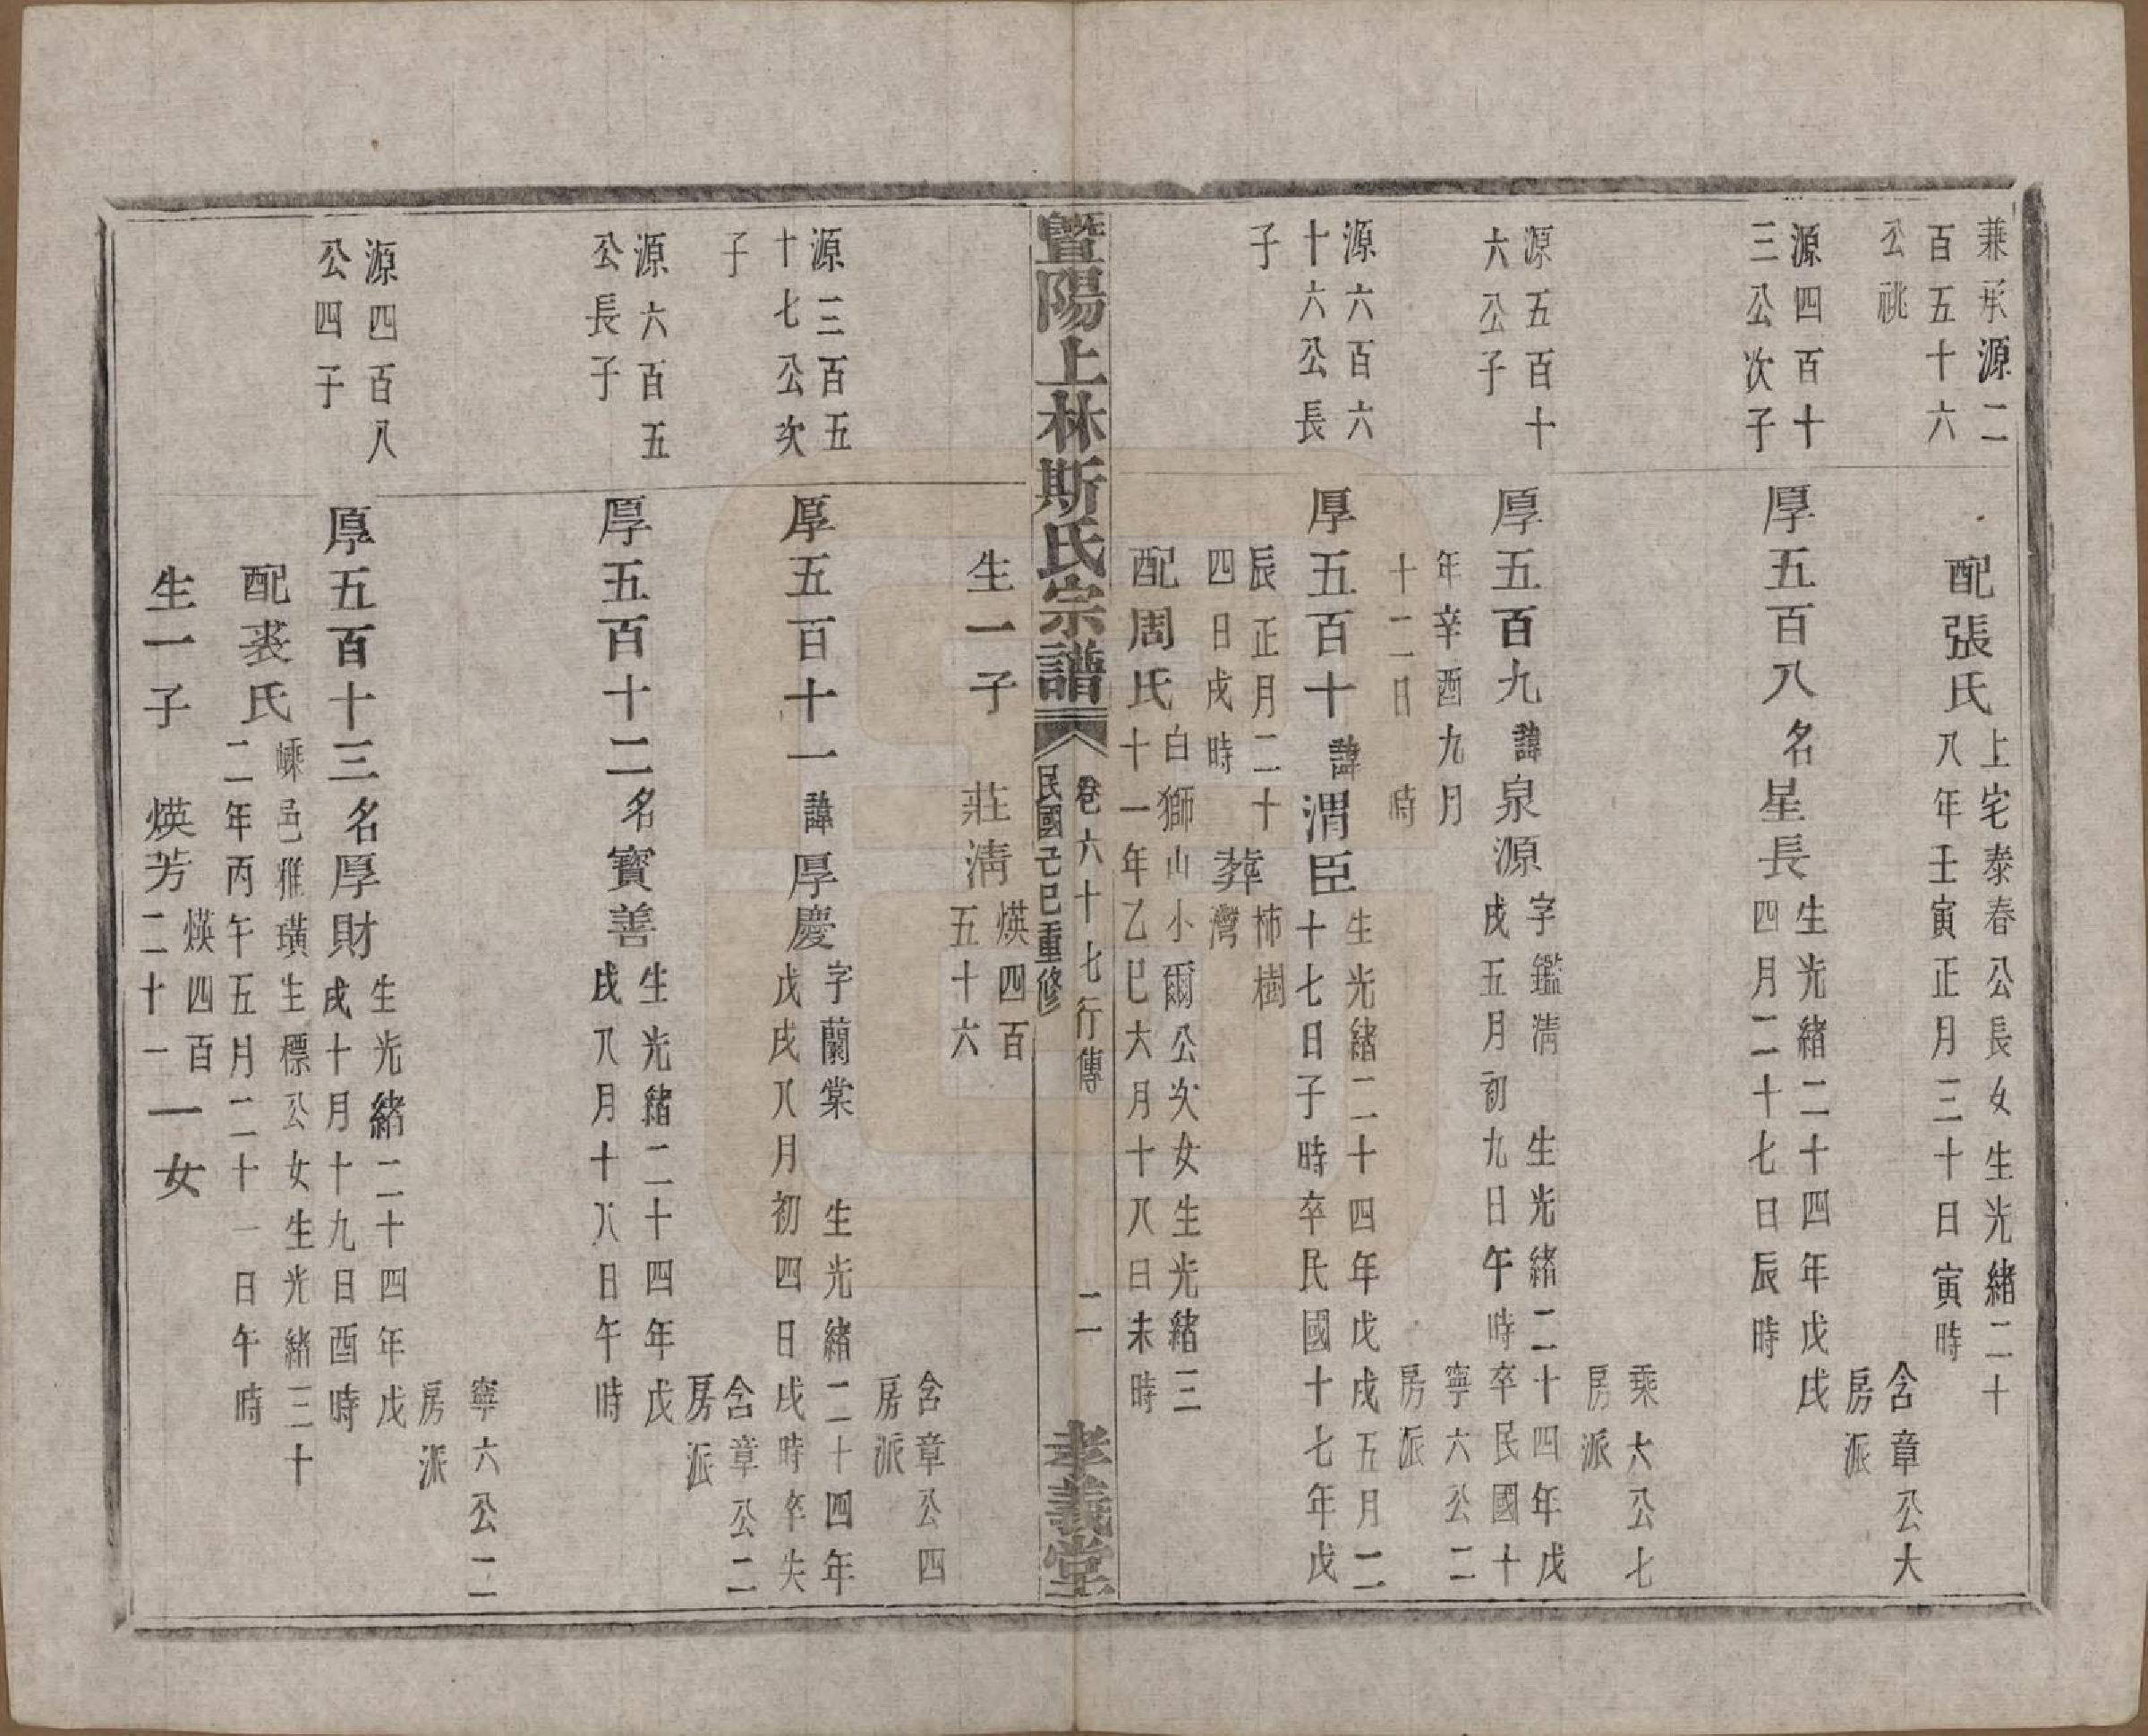 兼承源二
百五十六
公祧
配張氏
上宅泰春公長女生光緒二十
八年壬寅正月三十日寅時
含章公大
房派
源四百十
三公次子
厚五百八
名星長
生光緒二十四年戊戌
四月二十七日辰時
乘大公七
房派
源五百十
六公子
厚五百九
諱泉源
字鑑淸 生光緒二十四年戊
戌五月初九日午時卒民國十
年辛酉九月
十二日 時
寧六公二
房派
源六百六
十六公長
子
厚五百十
諱渭臣
生光緒二十四年戊戌五月二
十七日子時卒民國十七年戊
辰正月二十
四日戌時
葬
柿樹
灣
配周氏
白獅山小爾公次女生光緒三
十一年乙巳六月十八日未時
暨陽上林斯氏宗譜
卷六十七行傳
民國己巳重修
二
孝義堂
生一子 莊淸
煐四百
五十六
含章公四
房派
源三百五
十七公次
子
厚五百十一
諱厚慶
字蘭棠 生光緒二十四年
戊戌八月初四日戌時卒失
含章公二
房派
源六百五
公長子
厚五百十二
名寶善
生光緒二十四年戊
戌八月十八日午時
寧六公二
房派
源四百八
公四子
厚五百十三
名厚財
生光緒二十四年戊
戌十月十九日酉時
配裘氏
嵊邑雅璜生標公女生光緒三十
二年丙午五月二十一日午時
生一子 煐芳
煐四百
二十一
一女